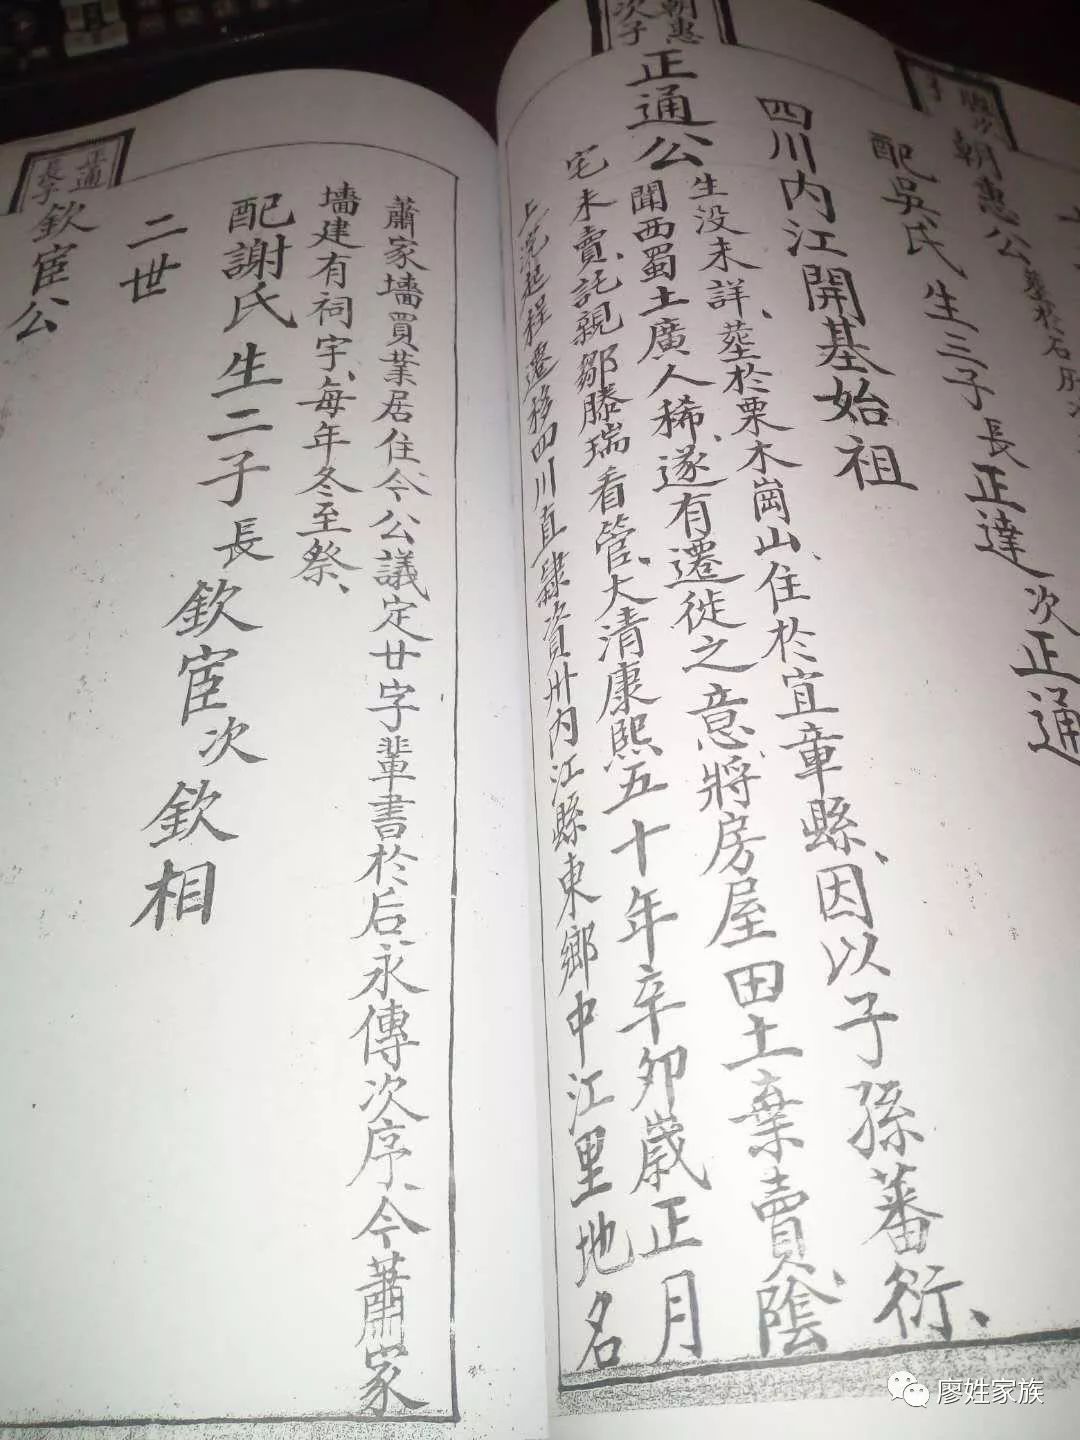 朝惠公
配吳氏生三子長正達次正通
四川内江開基始祖
朝惠
次子
正通公
生没未詳、塟於栗木崗山、住於宜章縣、因以子孫蕃衍、
聞西蜀土廣人稀、遂有遷徙之意、將房屋田土棄賣、陰
宅未賣、託親鄒滕瑞看管、大清康熙五十年辛卯歲正月
起程遷移四川直隸資州内江縣東鄉中江里地名
蕭家墻買業居住、今公議定廿字輩書於后、永傳次序、今蕭家
墻建有祠宇、每年冬至祭、
配謝氏生二子長欽宦次欽相
二世
正通
長子
欽宦公
廖姓家族